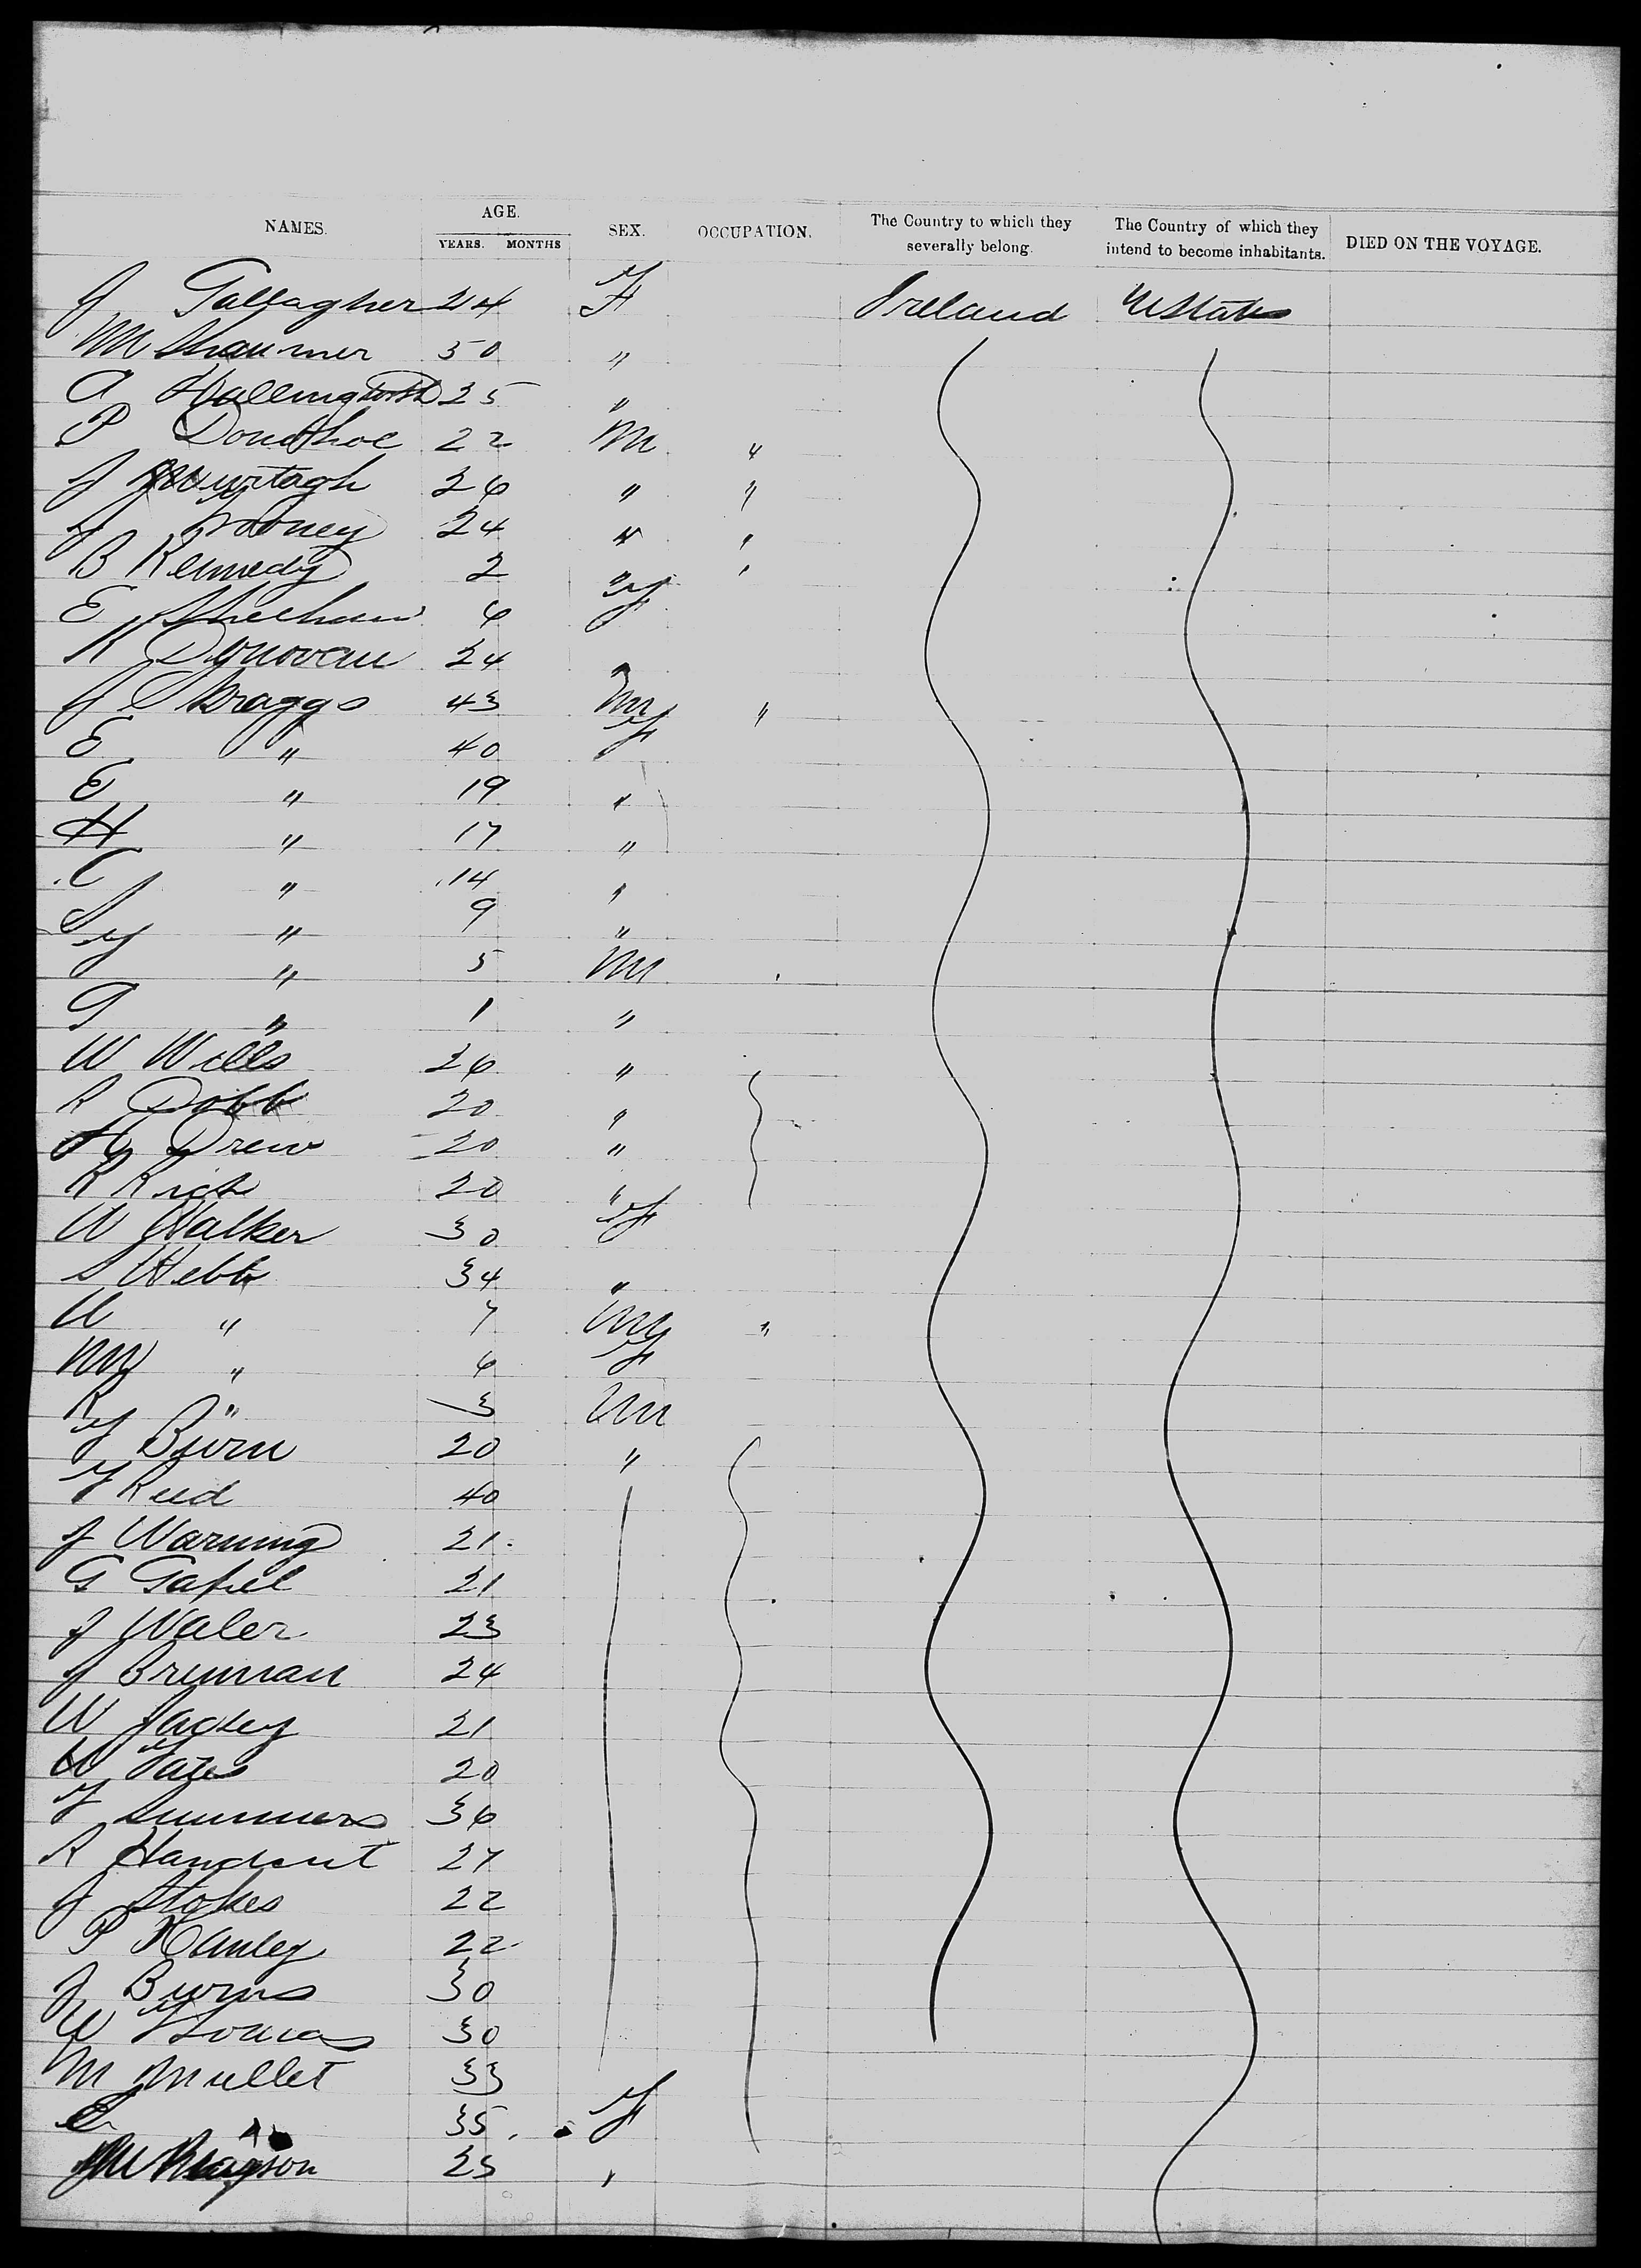 NAMES. AGE. YEARS. MONTHS SEX. OCCUPATION. The Country to which they severally belong. The Country of which they intend to become inhabitants. DIED ON THE VOYAGE.
J Gallagher 24 F Ireland UStates
M 50 "
A Hallingworth 25 "
P Donohoe 22 M "
J Murtagh 26 " "
24 " "
B Kennedy 2 " "
E Sheehan 6 F
K Donovan 24 "
J Scraggs 43 M "
E " 40 F
E " 19 "
H " 17 "
C " 14 "
" 9 "
" 5 M
G " 1 "
W Wills 26 "
R Dobb 20 "
Hy Drew 20 "
R Rich 20 "
W Walker 30 F
S Webb 34 "
W " 7 M "
My " 6 F
R " 3 M
J Burn 20 "
J Reid 40
J Warning 21
G 21
J Waler 23
J Brennan 24
W 21
W 20
J Summers 36
R 27
J Stokes 22
P Hanley 22
J Burns 30
W Thomas 30
M Mullet 33
C 35 F
25 "